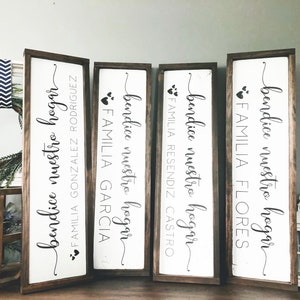 bendice nuestro hogar
FAMILIA GONZALEZ RODRIGUEZ
bendice nuestro hogar
FAMILIA GARCIA
bendice nuestro hogar
FAMILIA RESENDIZ CASTRO
bendice nuestro hogar
FAMILIA FLORES